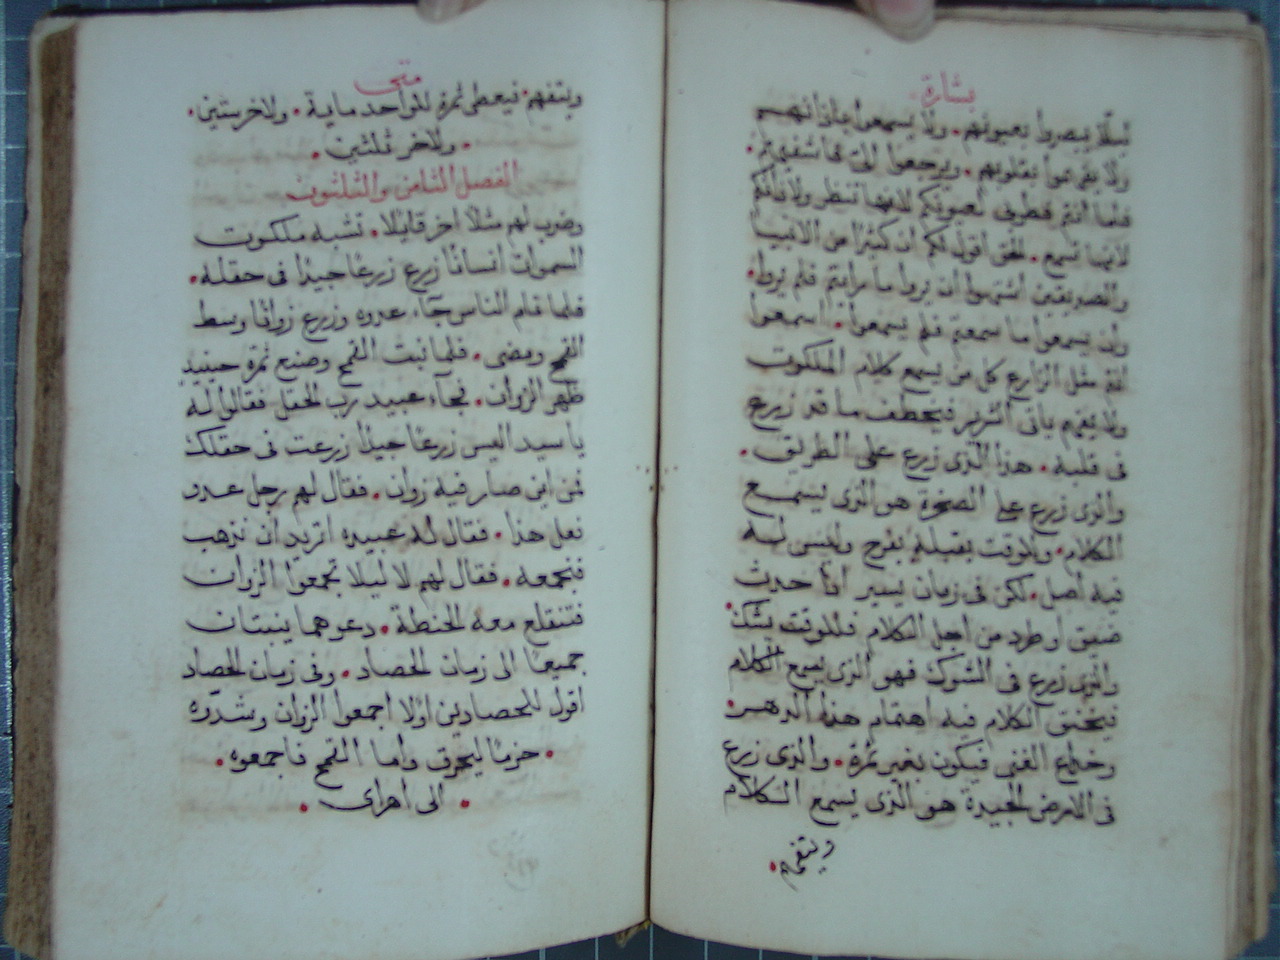 بشارة
ليلّا يبصروا بعيونهم. ولا يسمعوا باذانهم
ولا يفهموا بقلوبهم. ويرجعوا الىّ فاشفيهم.
فاما انتم فطوبى لعيونكم لانها تنظر ولاذانكم
لانها تسمع. الحق اقول لكم ان كثيرًا من الانبيا
والصديقين اشتهوا ان يروا ما رايتم فلم يروا.
وان يسمعوا ما سمعتم فلم يسمعوا. اسمعوا
انتم مثل الزارع كل من يسمع كلام الملكوت
ولا يفهم ياتى الشرير فيخطف ما قد زرع
فى قلبه. هذا الذى زرع على الطريق.
والذى زرع على الصخرة هو الذى يسمع
الكلام. وللوقت يقبله بفرح وليس له
فيه اصل. لكن فى زمان يسير اذا حدث
ضيق او طرد من اجل الكلام فللوقت يشك.
والذى زرع فى الشوك فهو الذى يسمع الكلام
فيخنق الكلام فيه اهتمام هذا الدهر.
وخداع الغنى فيكون بغير ثمرة. والذى زرع
فى الارض الجيدة هو الذى يسمع الكلام
ويتفهم.
متى
ويتفهم. فيعطى ثمرة للواحد ماية. ولاخر ستين.
. ولاخر ثلثين.
الفصل الثامن والثلثون
وضرب لهم مثلًا اخر قايلًا. تشبه ملكوت
السموات انسانًا زرع زرعًا جيدًا فى حقله.
فلما نام الناس جآء عدوه وزرع زوانًا وسط
القمح ومضى. فلما نبت القمح وصنع ثمرة حينيذ
ظهر الزوان. فجآء عبيد رب الحقل فقالوا له
يا سيد اليس زرعًا جيدًا زرعت فى حقلك
فمن اين صار فيه زوان. فقال لهم رجل عدو
فعل هذا. فقال له عبيده اتريد ان نذهب
فنجمعه. فقال لهم لا ليلا تجمعوا الزوان
فتنقلع معه الحنطة. دعوهما ينبتان
جميعًا الى زمان الحصاد. وفى زمان الحصاد
اقول للحصادين اولا اجمعوا الزوان وشدّوه
. حزمًا ليحرق واما القمح فاجمعوه.
. الى اهراى.